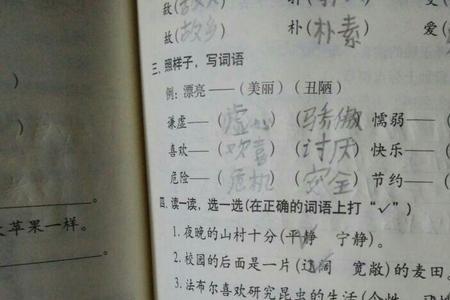 故(故乡) 朴(朴素) 爱(
三、照样子，写词语
例：漂亮——(美丽)(丑陋)
谦虚——(虚心)(骄傲) 懦弱——(
喜欢——(欢喜)(讨厌) 快乐——(
危险——(危机)(安全) 节约——(
四、读一读，选一选(在正确的词语上打“✓”)
大苹果一样。
1.夜晚的山村十分(平静 宁静)。
2.校园的后面是一片(辽阔 宽敞)的麦田。
3.法布尔喜欢研究昆虫的生活(个性